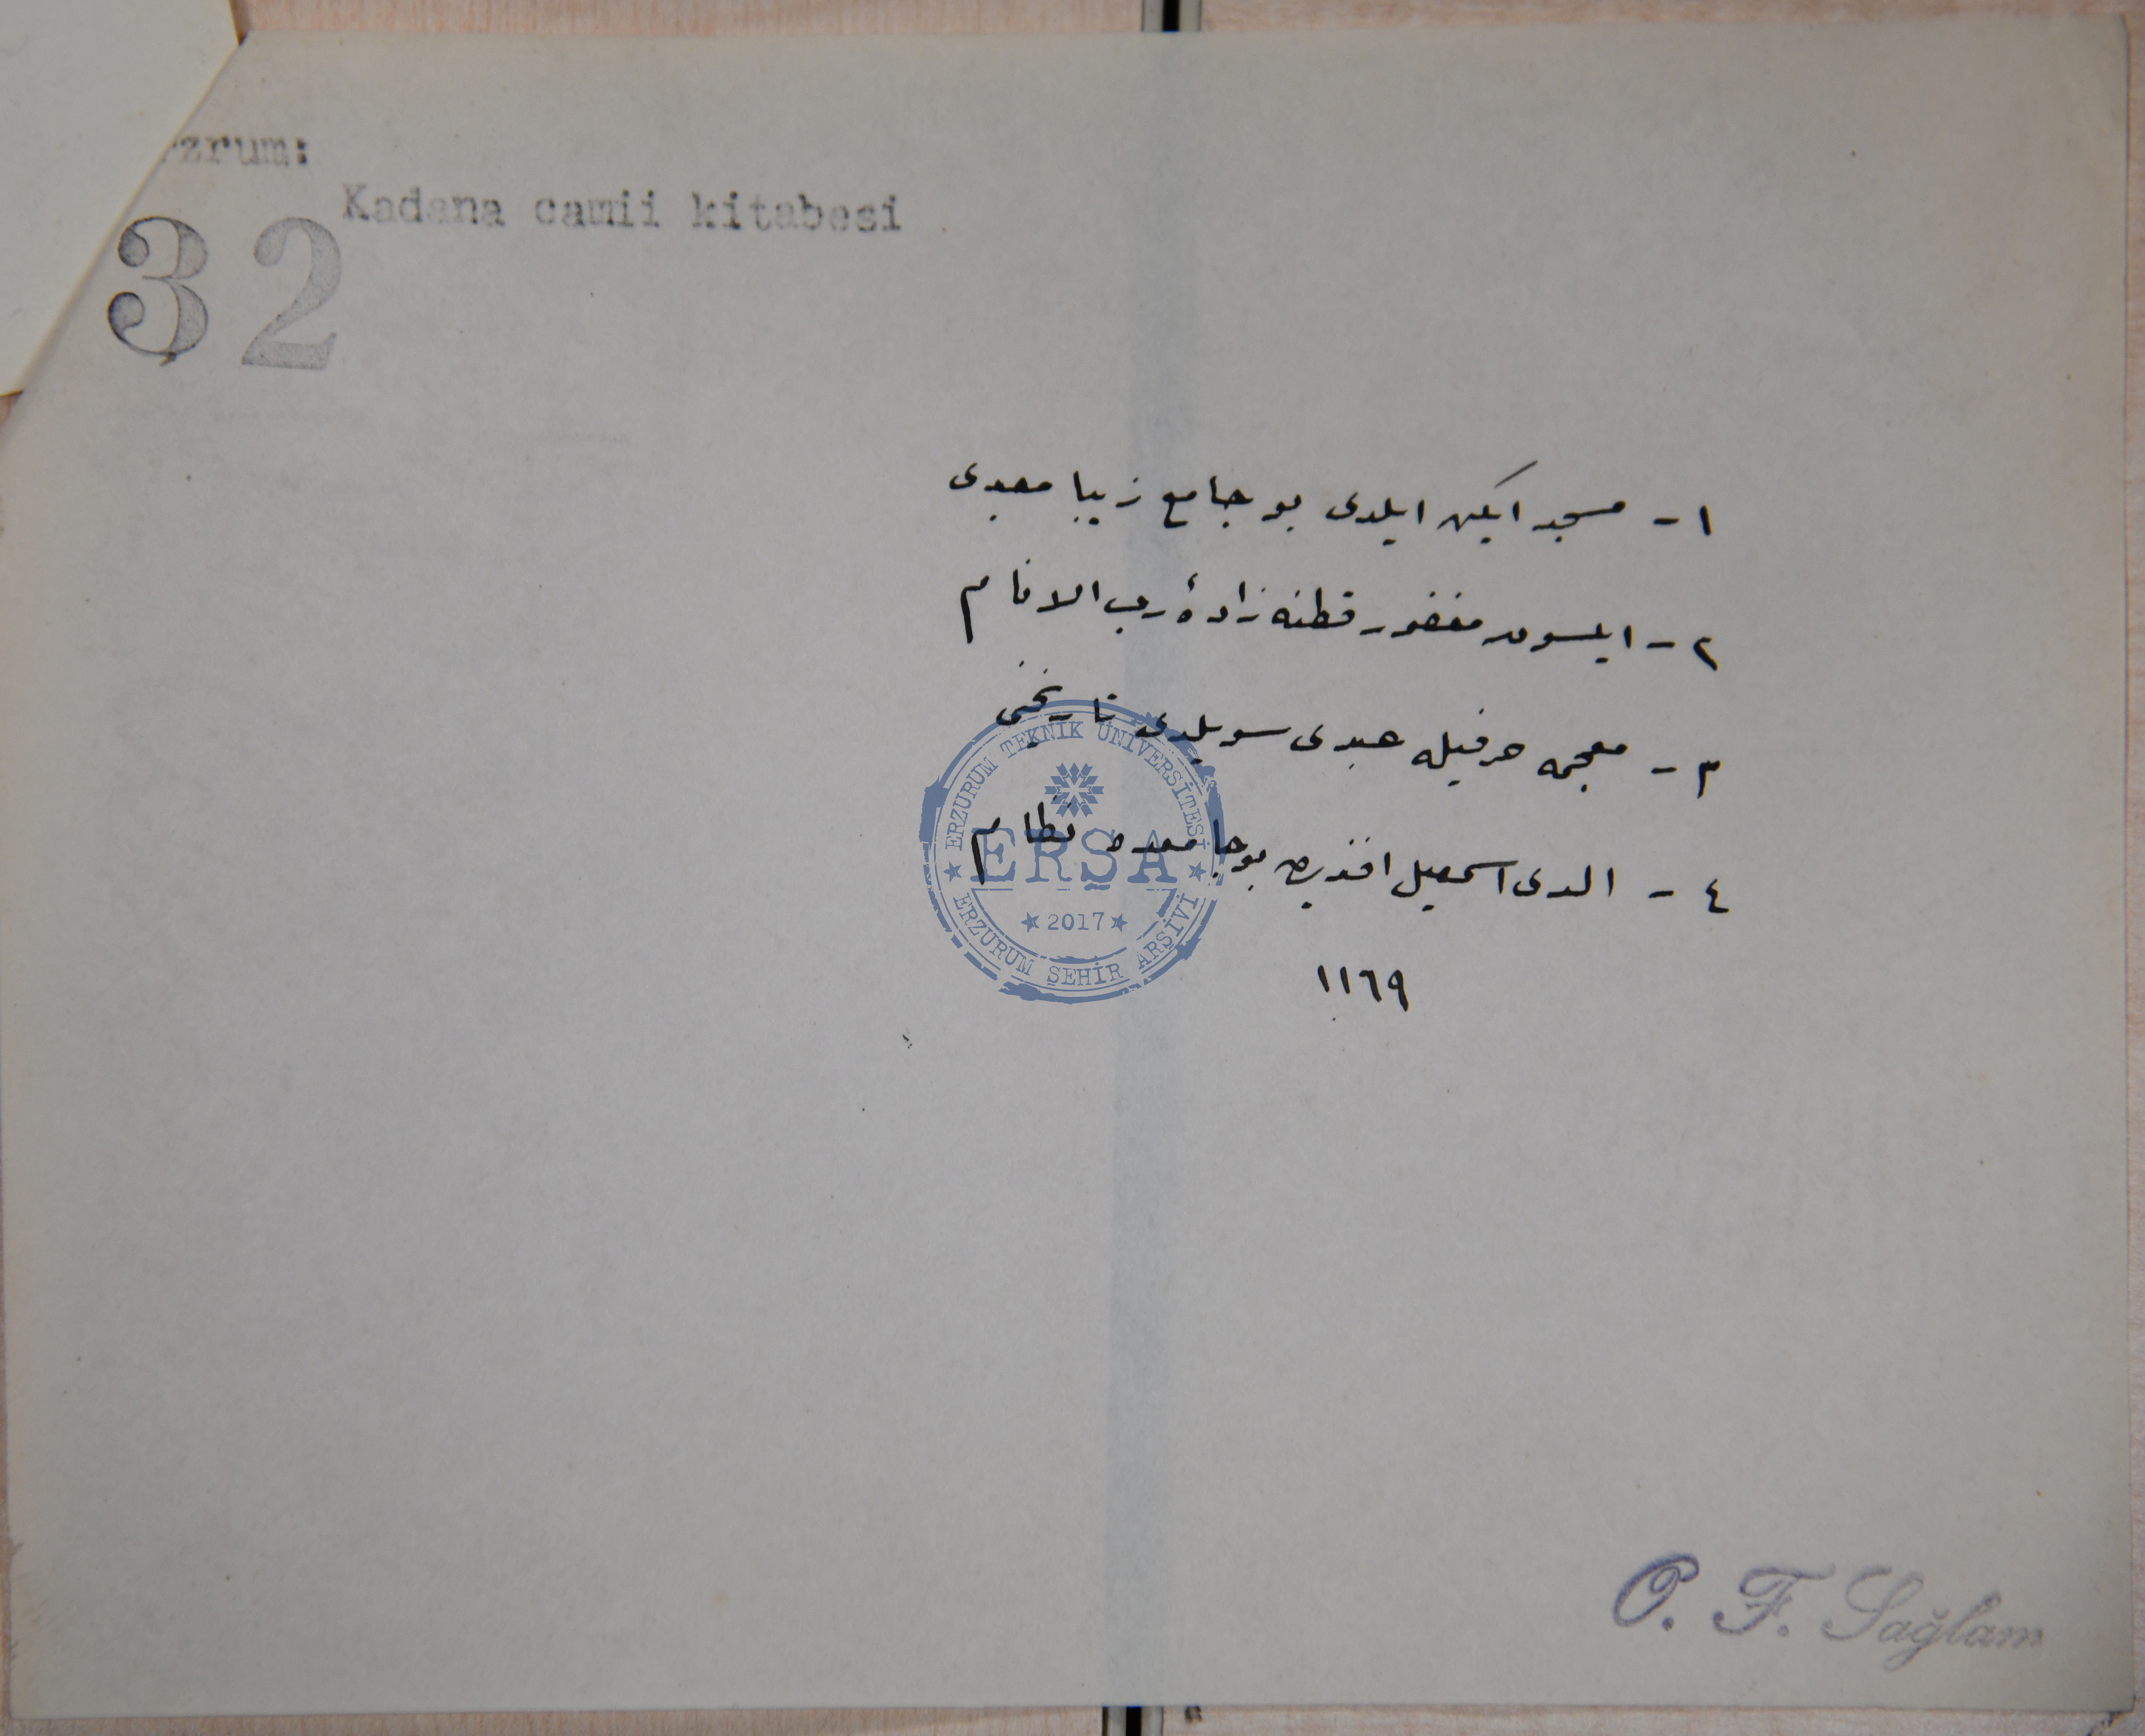 rzrum:
Kadana camii kitabesi
32
١ - مسجد ايكن ايلدى بو جامع زيبا معبدى
٢ - ايلسون مغفور قطنه زادهٔ رب الانام
٣ - معجمه حرفيله عبدى سويلدى تاريخنى
٤ - الدى اسمعيل افنديدن بو جامعده نظام
١١٦٩
ERZURUM TEKNİK ÜNİVERSİTESİ
ERŞA
2017
ERZURUM ŞEHİR ARŞİVİ
O. F. Sağlam